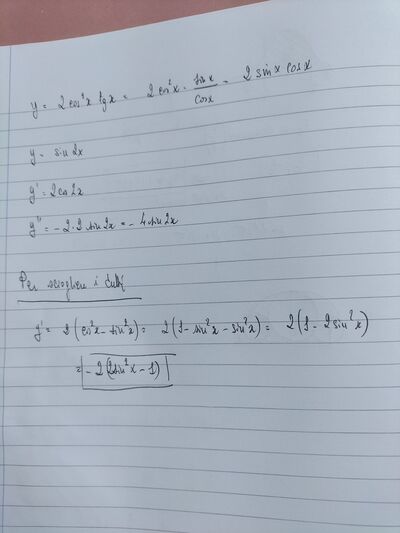 y = 2cos²x tgx = 2cos²x · sinx/cosx = 2 sinx cosx
y = sin 2x
y' = 2cos 2x
y'' = -2·2 sin 2x = -4 sin 2x
Per sciogliere i dubbi
y' = 2(cos²x - sin²x) = 2(1 - sin²x - sin²x) = 2(1 - 2 sin²x)
= -2(2sin²x - 1)